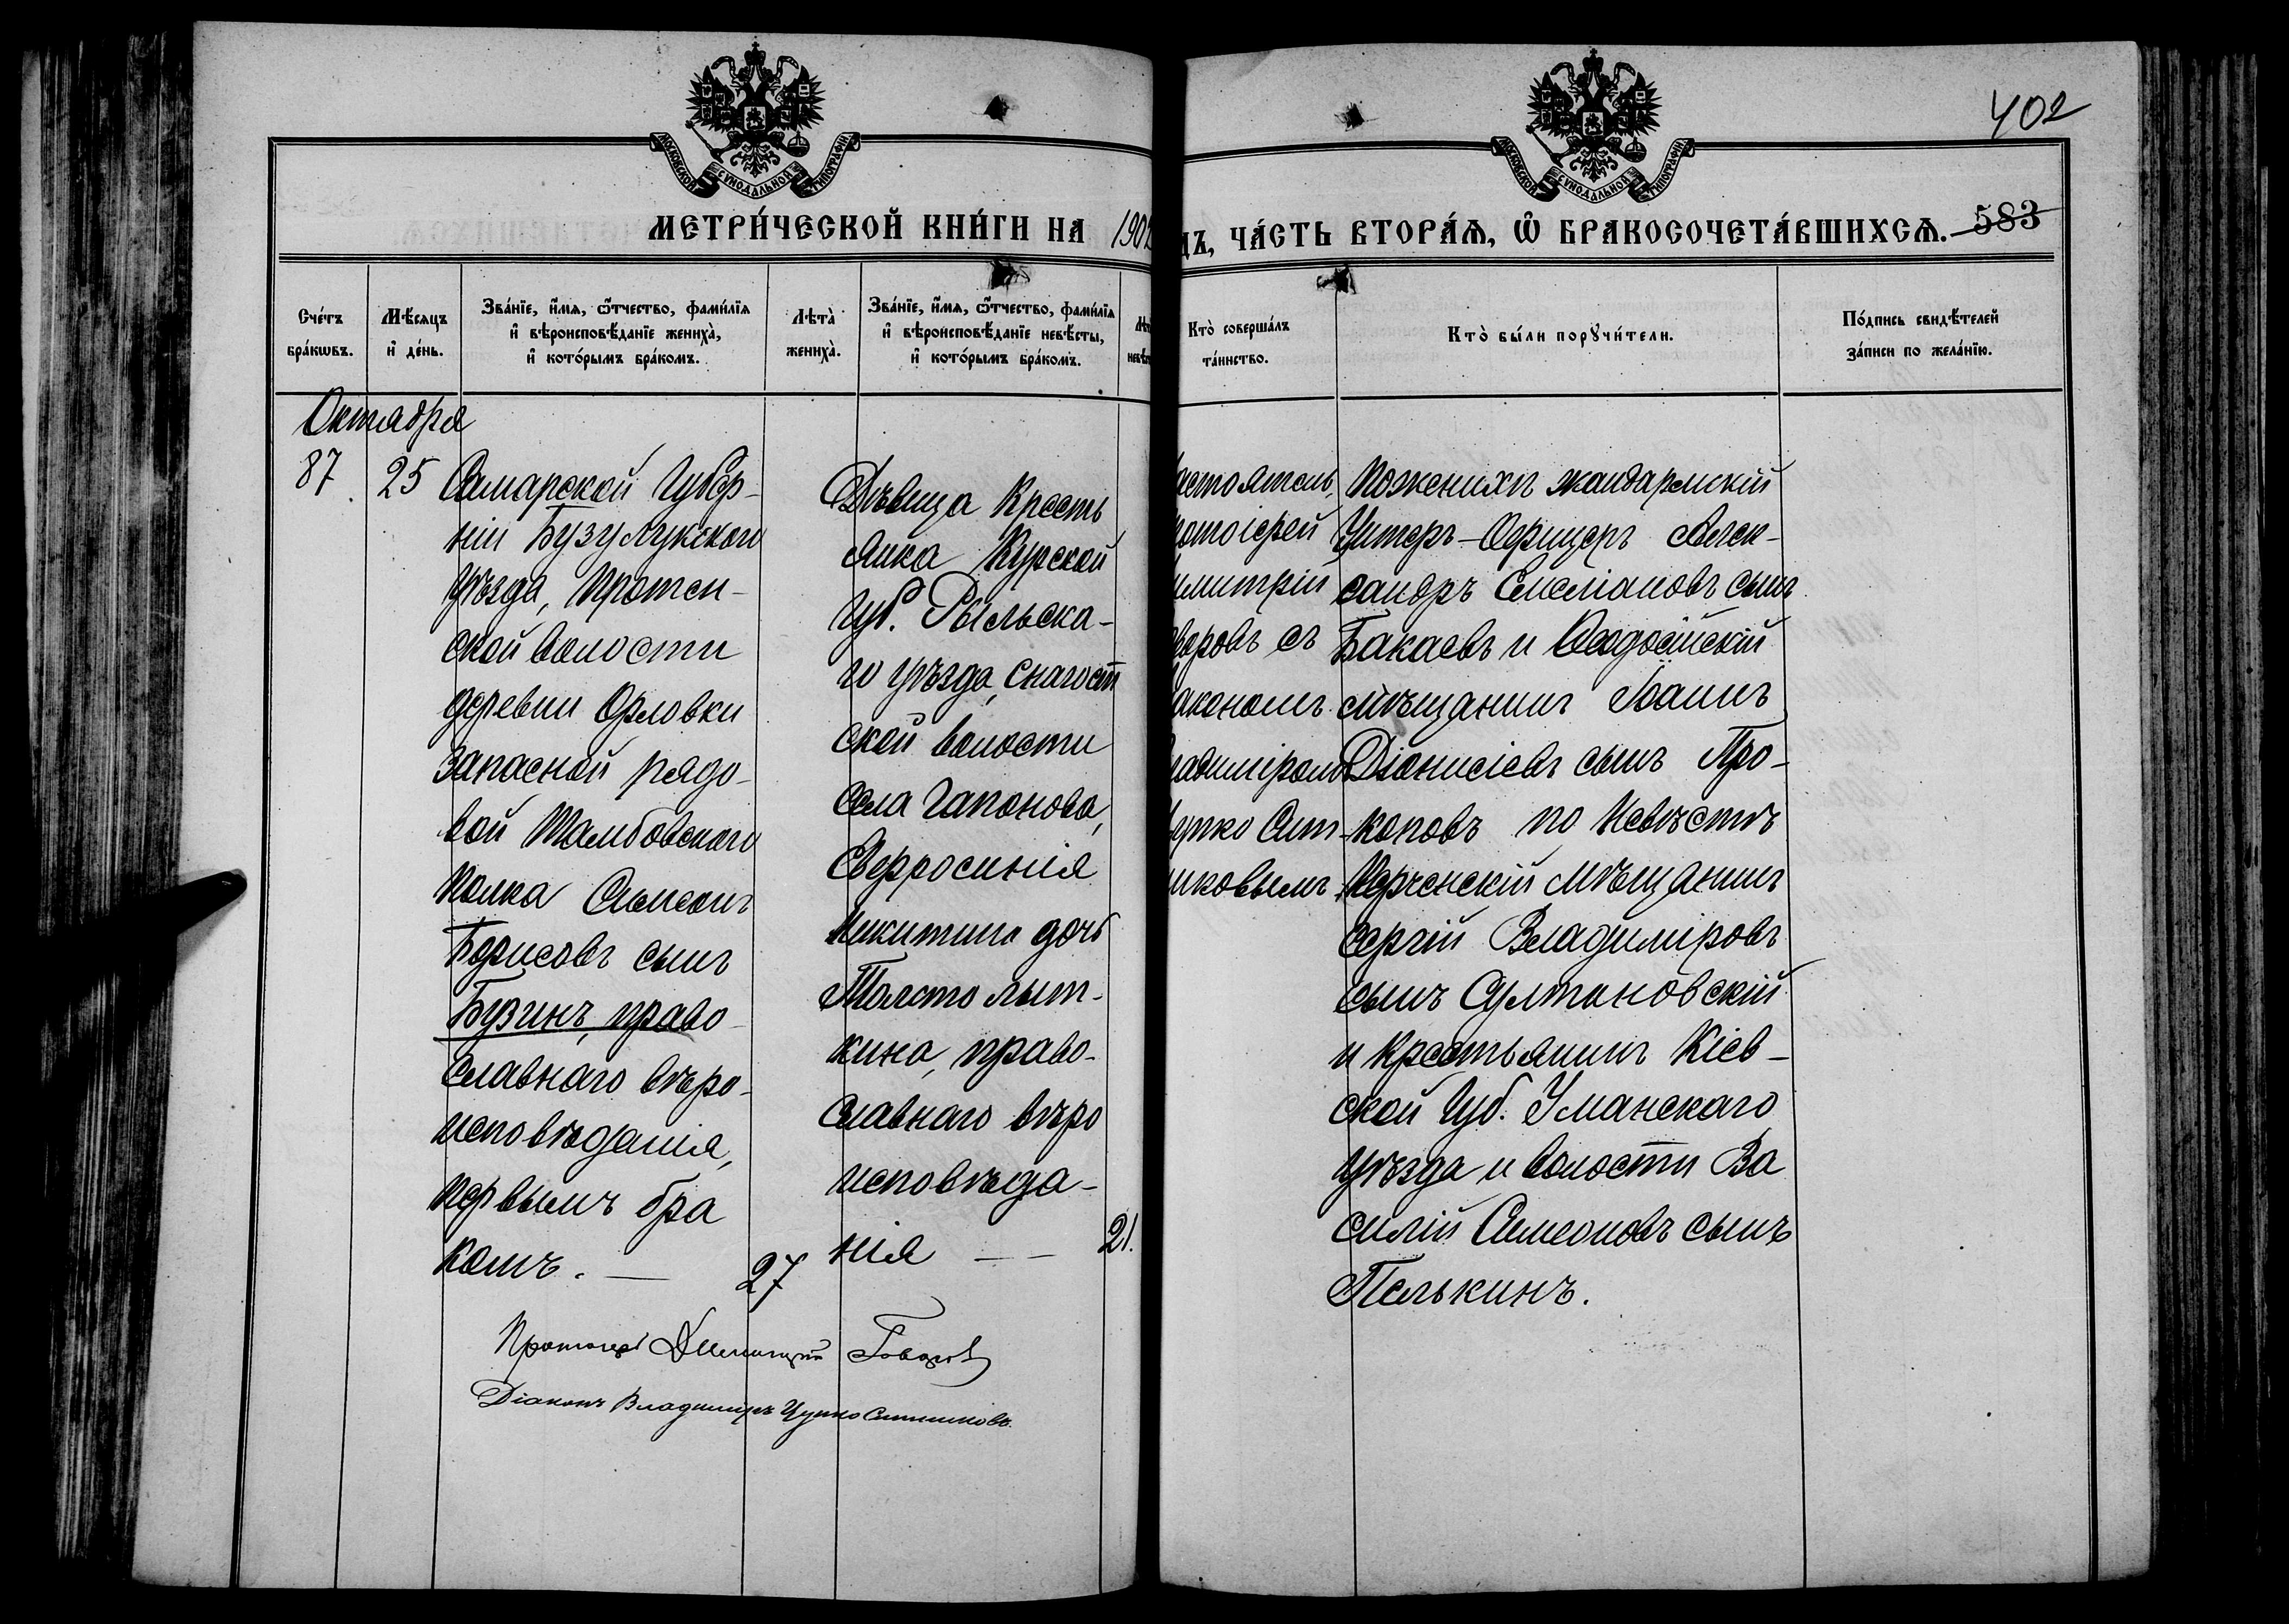 402
МОСКОВСКОЙ СѴНОДАЛЬНОЙ ТИПОГРАФІИ
МОСКОВСКОЙ СѴНОДАЛЬНОЙ ТИПОГРАФІИ
МЕТРИ́ЧЕСКОЙ КНИ́ГИ НА 1902
дъ, ЧА́СТЬ ВТОРА́Ѧ, Ѡ БРАКОСОЧЕТА́ВШИХСѦ. 583
Сче́тъ
бра́кѡвъ.
Мѣ́сяцъ
и҆ де́нь.
Зва́нїе, и҆́мя, ѻ҆́тчество, фами́лїя
и҆ вѣроисповѣ́данїе жениха̀,
и҆ кото́рымъ бра́комъ.
Лѣта̀
жениха̀.
Зва́нїе, и҆́мя, ѻ҆́тчество, фами́лїя
и҆ вѣроисповѣ́данїе невѣ́сты,
и҆ кото́рымъ бра́комъ.
Кто̀ соверша́лъ
та́инство.
Кто̀ бы́ли порꙋчи́тели.
По́дпись свидѣ́телей
за́писи по жела́нїю.
Октября
87
25
Самарской Губер-
ніи Бузулукскаго
уѣзда, Протен-
ской волости
деревни Орловки
запасной рядо-
вой Тамбовскаго
полка Симеонъ
Борисовъ сынъ
Бузинъ, право-
славнаго вѣро-
исповѣданія,
первымъ бра
комъ. —
27
Дѣвица Кресть
янка Курской
губ. Рыльска-
го уѣзда, Снагост
ской волости
села Гапонова,
Евфросинія
Никитина дочь
Толсто лыт-
кина, право-
славнаго вѣро
исповѣда-
нія — —
21.
астоятель,
отоіерей
имитрій
воровъ съ
акономъ
ладиміромъ
упко Сит-
никовымъ
По женихѣ жандармскій
Унтеръ-Офицеръ Алек-
сандръ Емеліановъ сынъ
Бакаевъ и Ѳеодосійскій
мѣщанинъ Іоаннъ
Діонисіевъ сынъ Про-
коповъ по Невѣстѣ
Керченскій мѣщанинъ
Сергій Владиміровъ
сынъ Султановскій
и крестьянинъ Кіев-
ской Губ. Уманскаго
уѣзда и волости Ва
силій Симеоновъ сынъ
Пелькинъ.
Протоіерей Димитрій Говоровъ
Діаконъ Владиміръ Цупко Ситниковъ.